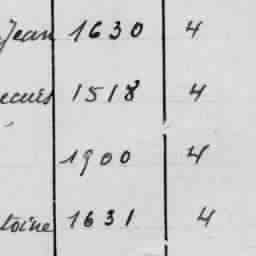 Jean 1630 4
ecues 1518 4
1900 4
toine 1631 4